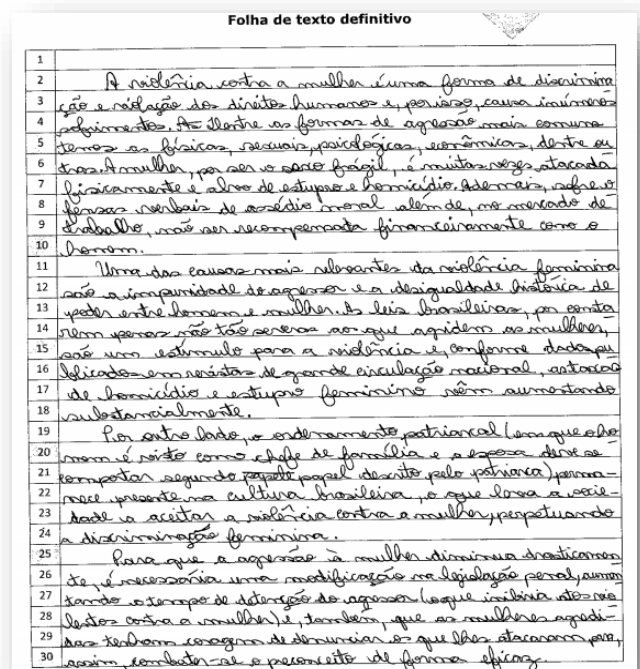 Folha de texto definitivo
1
2 A violência contra a mulher é uma forma de discrimina
3 ção e violação dos direitos humanos e, por isso, causa inúmeros
4 sofrimentos. As Dentre as formas de agressão mais comuns
5 temos as físicas, sexuais, psicológicas, econômicas, dentre ou
6 tras. A mulher, por ser o sexo frágil, é muitas vezes atacada
7 fisicamente e alvo de estupro e homicídio. Ademais, sofre o
8 fensas verbais de assédio moral além de, no mercado de
9 trabalho, não ser recompensada financeiramente como o
10 homem.
11 Uma das causas mais relevantes da violência feminina
12 são a impunidade do agressor e a desigualdade histórica de
13 poder entre homem e mulher. As leis brasileiras, por conte
14 rem penas não tão severas aos que agridem as mulheres,
15 são um estímulo para a violência e, conforme dados pu
16 blicados em revistas de grande circulação nacional, as taxas
17 de homicídio e estupro feminino vêm aumentando
18 substancialmente.
19 Por outro lado, o ordenamento patriarcal (em que o ho
20 mem é visto como chefe de família e a esposa deve se
21 comportar segundo papele papel descrito pelo patriarca) perma-
22 nece presente na cultura brasileira, o que leva a socie-
23 dade a aceitar a violência contra a mulher, perpetuando
24 a discriminação feminina.
25 Para que a agressão à mulher diminua drasticamen
26 te, é necessária uma modificação na legislação penal, aumen
27 tando o tempo de detenção do agressor (o que inibiria atos vio
28 lentos contra a mulher) e, também, que as mulheres agredi-
29 das tenham coragem de denunciar os que lhes atacaram para,
30 assim, combater-se o preconceito de forma eficaz.